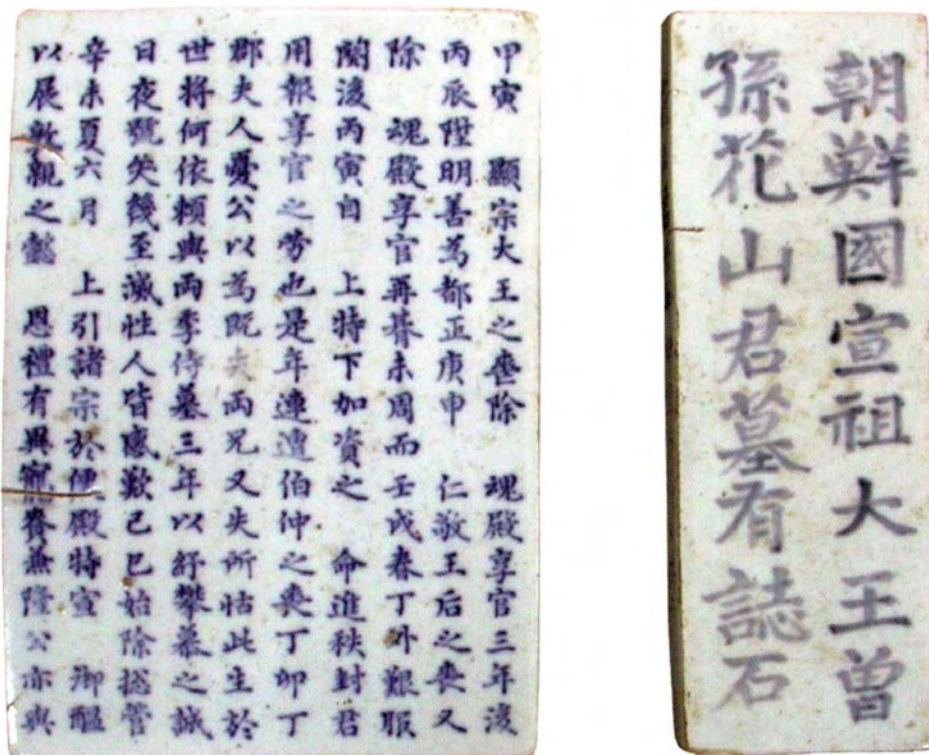 甲寅 顯宗大王之喪除 魂殿享官三年後
丙辰陞明善爲都正庚申 仁敬王后之喪又
除 魂殿享官再朞未周而壬戌春丁外艱服
闋後丙寅自 上特下加資之 命進秩封君
用報享官之勞也是年連遭伯仲之喪丁卯丁
郡夫人憂公以爲旣失兩兄又失所怙此生於
世將何依賴與兩季侍墓三年以紓攀慕之誠
日夜號哭幾至滅性人皆感歎己巳始除摠管
辛未夏六月 上引諸宗於便殿特宣 御醞
以展敦親之懿 恩禮有異寵賚兼隆公亦與
朝鮮國宣祖大王曾
孫花山君墓有誌石